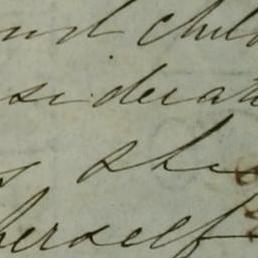 and chil
siderat
she
herself